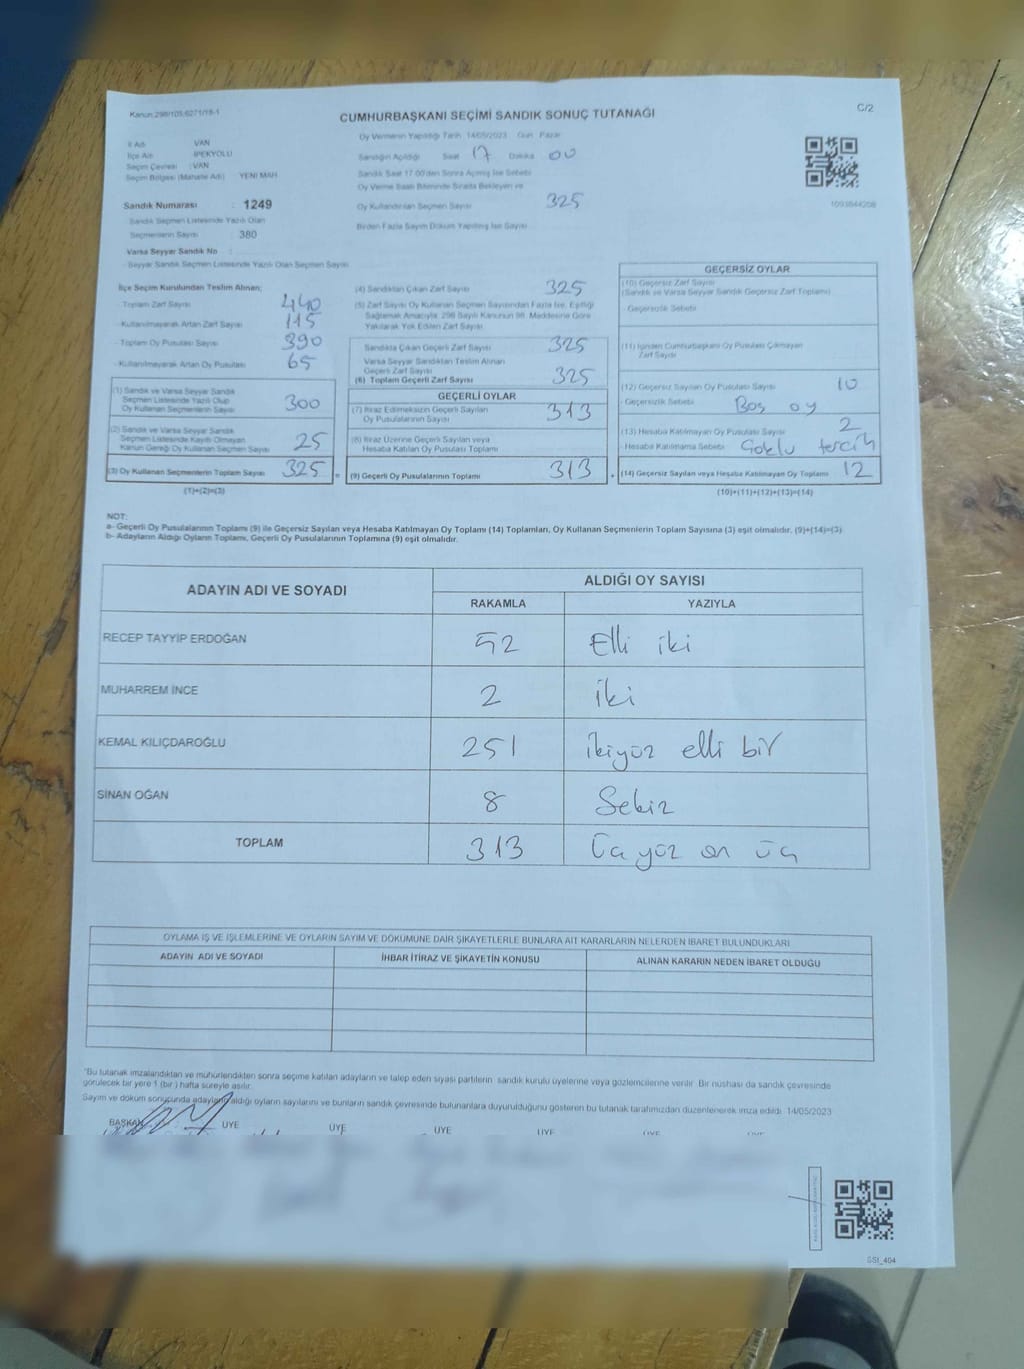 Kanun:298/103;6271/18-1
CUMHURBAŞKANI SEÇİMİ SANDIK SONUÇ TUTANAĞI
C/2
İl Adı : VAN
İlçe Adı : İPEKYOLU
Seçim Çevresi : VAN
Seçim Bölgesi (Mahalle Adı) : YENİ MAH.
Sandık Numarası : 1249
Sandık Seçmen Listesinde Yazılı Olan
Seçmenlerin Sayısı : 380
Varsa Seyyar Sandık No :
- Seyyar Sandık Seçmen Listesinde Yazılı Olan Seçmen Sayısı
Oy Vermenin Yapıldığı Tarih 14/05/2023 Gün Pazar
Sandığın Açıldığı Saat 17 Dakika 00
Sandık Saat 17.00'den Sonra Açılmış İse Sebebi
Oy Verme Saati Bitiminde Sırada Bekleyen ve
Oy Kullandırılan Seçmen Sayısı 325
Birden Fazla Sayım Döküm Yapılmış İse Sayısı
1093844208
İlçe Seçim Kurulundan Teslim Alınan;
- Toplam Zarf Sayısı 440
- Kullanılmayarak Artan Zarf Sayısı 115
- Toplam Oy Pusulası Sayısı 390
- Kullanılmayarak Artan Oy Pusulası 65
(1) Sandık ve Varsa Seyyar Sandık
Seçmen Listesinde Yazılı Olup
Oy Kullanan Seçmenlerin Sayısı 300
(2) Sandık ve Varsa Seyyar Sandık
Seçmen Listesinde Kayıtlı Olmayan
Kanun Gereği Oy Kullanan Seçmen Sayısı 25
(3) Oy Kullanan Seçmenlerin Toplam Sayısı 325 =
(1)+(2)=(3)
(4) Sandıktan Çıkan Zarf Sayısı 325
(5) Zarf Sayısı Oy Kullanan Seçmen Sayısından Fazla İse, Eşitliği
Sağlamak Amacıyla 298 Sayılı Kanunun 98. Maddesine Göre
Yakılarak Yok Edilen Zarf Sayısı
Sandıkta Çıkan Geçerli Zarf Sayısı 325
Varsa Seyyar Sandıktan Teslim Alınan
Geçerli Zarf Sayısı
(6) Toplam Geçerli Zarf Sayısı 325
GEÇERLİ OYLAR
(7) İtiraz Edilmeksizin Geçerli Sayılan
Oy Pusulalarının Sayısı 313
(8) İtiraz Üzerine Geçerli Sayılan veya
Hesaba Katılan Oy Pusulası Toplamı
(9) Geçerli Oy Pusulalarının Toplamı 313 +
GEÇERSİZ OYLAR
(10) Geçersiz Zarf Sayısı
(Sandık ve Varsa Seyyar Sandık Geçersiz Zarf Toplamı)
- Geçersizlik Sebebi
(11) İçinden Cumhurbaşkanı Oy Pusulası Çıkmayan
Zarf Sayısı
(12) Geçersiz Sayılan Oy Pusulası Sayısı 10
- Geçersizlik Sebebi Boş oy
(13) Hesaba Katılmayan Oy Pusulası Sayısı 2
- Hesaba Katılmama Sebebi Çoklu tercih
(14) Geçersiz Sayılan veya Hesaba Katılmayan Oy Toplamı 12
(10)+(11)+(12)+(13)=(14)
NOT:
a- Geçerli Oy Pusulalarının Toplamı (9) ile Geçersiz Sayılan veya Hesaba Katılmayan Oy Toplamı (14) Toplamları, Oy Kullanan Seçmenlerin Toplam Sayısına (3) eşit olmalıdır. (9)+(14)=(3)
b- Adayların Aldığı Oyların Toplamı, Geçerli Oy Pusulalarının Toplamına (9) eşit olmalıdır.
ADAYIN ADI VE SOYADI
ALDIĞI OY SAYISI
RAKAMLA YAZIYLA
RECEP TAYYİP ERDOĞAN 52 Elli iki
MUHARREM İNCE 2 iki
KEMAL KILIÇDAROĞLU 251 ikiyüz elli bir
SİNAN OĞAN 8 Sekiz
TOPLAM 313 Üç yüz on üç
OYLAMA İŞ VE İŞLEMLERİNE VE OYLARIN SAYIM VE DÖKÜMÜNE DAİR ŞİKAYETLERLE BUNLARA AİT KARARLARIN NELERDEN İBARET BULUNDUKLARI
ADAYIN ADI VE SOYADI İHBAR İTİRAZ VE ŞİKAYETİN KONUSU ALINAN KARARIN NEDEN İBARET OLDUĞU
*Bu tutanak imzalandıktan ve mühürlendikten sonra seçime katılan adayların ve talep eden siyasi partilerin sandık kurulu üyelerine veya gözlemcilerine verilir. Bir nüshası da sandık çevresinde
görülecek bir yere 1 (bir) hafta süreyle asılır.
Sayım ve döküm sonucunda adayların aldığı oyların sayılarını ve bunların sandık çevresinde bulunanlara duyurulduğunu gösteren bu tutanak tarafımızdan düzenlenerek imza edildi. 14/05/2023
BAŞKAN ÜYE ÜYE ÜYE ÜYE ÜYE ÜYE
SSI_404